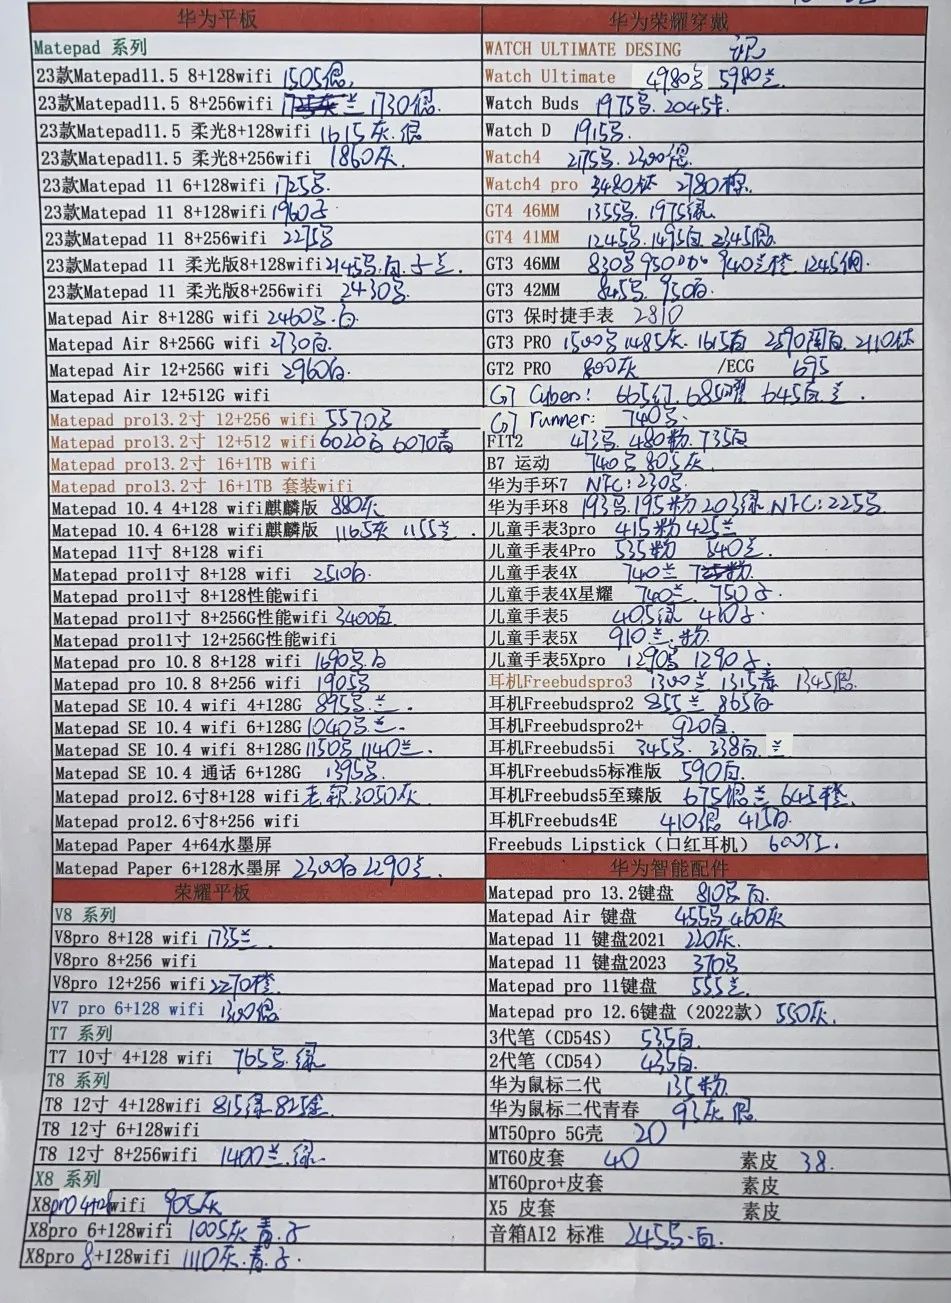 华为平板
Matepad 系列
23款Matepad11.5 8+128wifi 1505
23款Matepad11.5 8+256wifi 1730
23款Matepad11.5 柔光8+128wifi 1615灰.
23款Matepad11.5 柔光8+256wifi 1860灰.
23款Matepad 11 6+128wifi 1725
23款Matepad 11 8+128wifi 1960
23款Matepad 11 8+256wifi 2275
23款Matepad 11 柔光版8+128wifi 2145
23款Matepad 11 柔光版8+256wifi 2430
Matepad Air 8+128G wifi 2460 白
Matepad Air 8+256G wifi 2730白.
Matepad Air 12+256G wifi 2960白.
Matepad Air 12+512G wifi
Matepad pro13.2寸 12+256 wifi 5570
Matepad pro13.2寸 12+512 wifi 6020白 6070青
Matepad pro13.2寸 16+1TB wifi
Matepad pro13.2寸 16+1TB 套装wifi
Matepad 10.4 4+128 wifi麒麟版 880灰
Matepad 10.4 6+128 wifi麒麟版 1165灰 1155兰.
Matepad 11寸 8+128 wifi
Matepad pro11寸 8+128 wifi 2510白.
Matepad pro11寸 8+128性能wifi
Matepad pro11寸 8+256G性能wifi 3400白
Matepad pro11寸 12+256G性能wifi
Matepad pro 10.8 8+128 wifi 1690 白
Matepad pro 10.8 8+256 wifi 1905
Matepad SE 10.4 wifi 4+128G 895 兰.
Matepad SE 10.4 wifi 6+128G 1040 兰.
Matepad SE 10.4 wifi 8+128G 1150 1140兰.
Matepad SE 10.4 通话 6+128G 1395
Matepad pro12.6寸8+128 wifi 老款.3050灰
Matepad pro12.6寸8+256 wifi
Matepad Paper 4+64水墨屏
Matepad Paper 6+128水墨屏 2300白 2290兰.
荣耀平板
V8 系列
V8pro 8+128 wifi 1735兰
V8pro 8+256 wifi
V8pro 12+256 wifi 2270橙.
V7 pro 6+128 wifi 1300
T7 系列
T7 10寸 4+128 wifi 765 绿
T8 系列
T8 12寸 4+128wifi 815绿 825金.
T8 12寸 6+128wifi
T8 12寸 8+256wifi 1400兰.绿.
X8 系列
X8pro 4+128wifi 905灰
X8pro 6+128wifi 1005灰 青.
X8pro 8+128wifi 1110灰.青.
华为荣耀穿戴
WATCH ULTIMATE DESING
Watch Ultimate 4980 5980兰
Watch Buds 1975 2045
Watch D 1915
Watch4 2175 2300
Watch4 pro 3480钛 2780棕.
GT4 46MM 1355 1975绿
GT4 41MM 1245 1495白 2345
GT3 46MM 830 950 940 1245钢.
GT3 42MM 845 950白.
GT3 保时捷手表 2810
GT3 PRO 1500 1485灰. 1615白 2590 2110钛
GT2 PRO 800灰 /ECG 695
GT Cyber: 665红 685 645白 兰.
GT runner: 740
FIT2 473 480粉 735白
B7 运动 740 805灰.
华为手环7 NFC:230
华为手环8 193 195粉 203绿 NFC:225
儿童手表3pro 415粉 425兰
儿童手表4Pro 535粉 540兰.
儿童手表4X 740兰
儿童手表4X星耀 740兰. 750
儿童手表5 405绿 410
儿童手表5X 910兰.粉.
儿童手表5Xpro 1290 1290
耳机Freebudspro3 1300兰 1315青 1345
耳机Freebudspro2 855兰 865白
耳机Freebudspro2+ 920白.
耳机Freebuds5i 345 338白 兰
耳机Freebuds5标准版 590白.
耳机Freebuds5至臻版 675 兰 645橙.
耳机Freebuds4E 410 415白.
Freebuds Lipstick（口红耳机） 600红.
华为智能配件
Matepad pro 13.2键盘 810 白.
Matepad Air 键盘 455 460灰
Matepad 11 键盘2021 220灰.
Matepad 11 键盘2023 370
Matepad pro 11键盘 555兰.
Matepad pro 12.6键盘（2022款） 550灰.
3代笔（CD54S） 535白.
2代笔（CD54） 435白.
华为鼠标二代 135粉
华为鼠标二代青春 93灰
MT50pro 5G壳 20
MT60皮套 40 素皮 38.
MT60pro+皮套 素皮
X5 皮套 素皮
音箱AI2 标准 245 白.